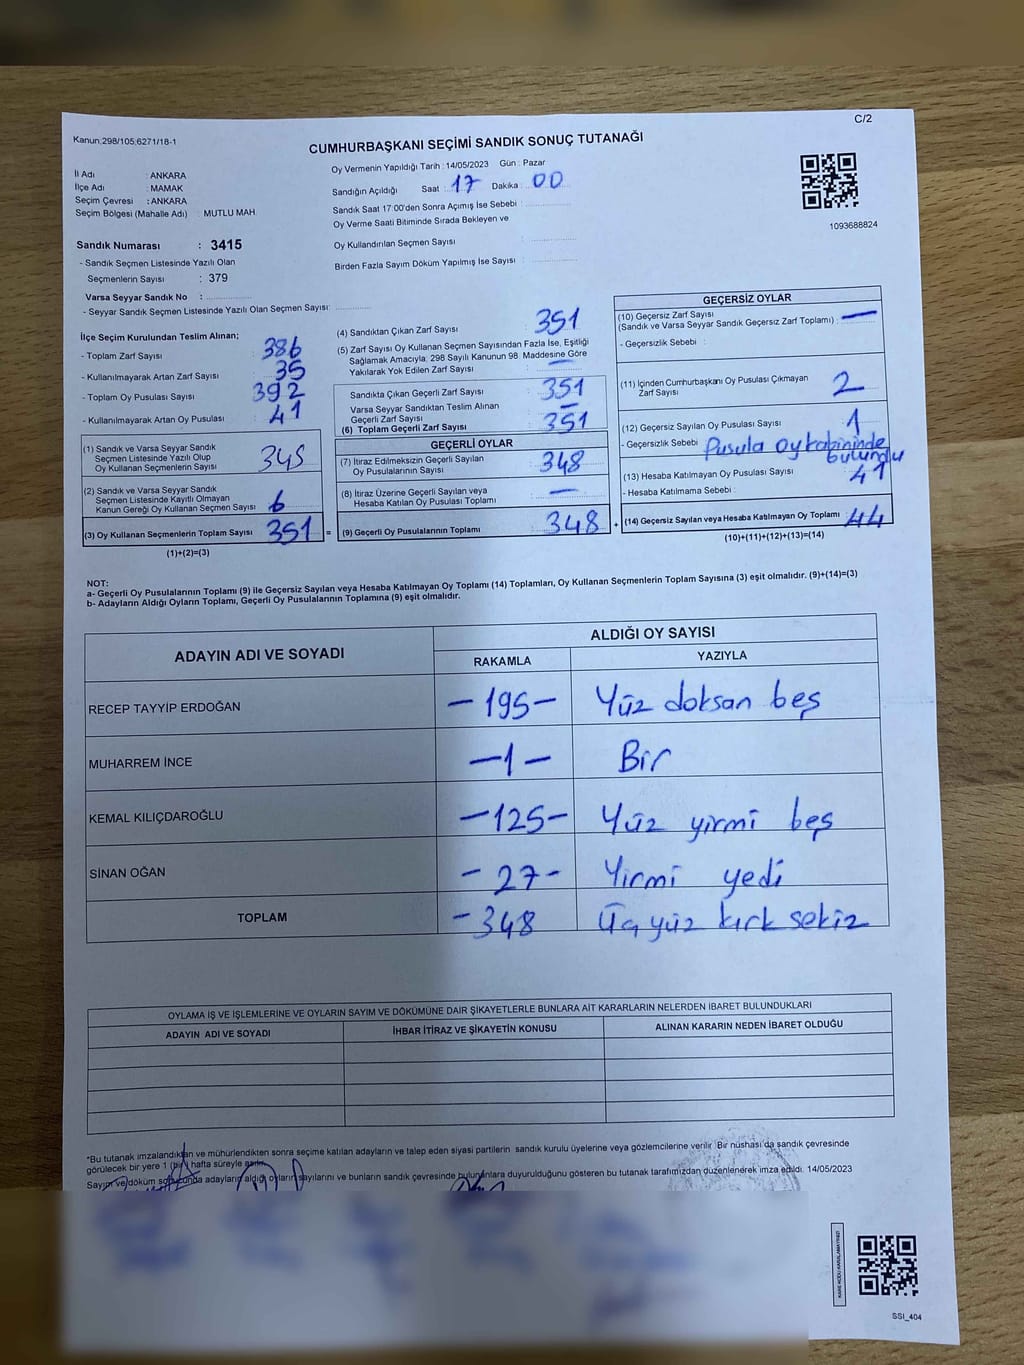 C/2
Kanun:298/105,6271/18-1
CUMHURBAŞKANI SEÇİMİ SANDIK SONUÇ TUTANAĞI
İl Adı : ANKARA
İlçe Adı : MAMAK
Seçim Çevresi : ANKARA
Seçim Bölgesi (Mahalle Adı) : MUTLU MAH
Oy Vermenin Yapıldığı Tarih : 14/05/2023 Gün : Pazar
Sandığın Açıldığı Saat : 17 Dakika : 00
Sandık Saat 17:00'den Sonra Açımış İse Sebebi :
Oy Verme Saati Bitiminde Sırada Bekleyen ve
Oy Kullandırılan Seçmen Sayısı :
Birden Fazla Sayım Döküm Yapılmış İse Sayısı :
1093688824
Sandık Numarası : 3415
- Sandık Seçmen Listesinde Yazılı Olan
Seçmenlerin Sayısı : 379
Varsa Seyyar Sandık No :
- Seyyar Sandık Seçmen Listesinde Yazılı Olan Seçmen Sayısı:
İlçe Seçim Kurulundan Teslim Alınan;
- Toplam Zarf Sayısı : 386
- Kullanılmayarak Artan Zarf Sayısı : 35
- Toplam Oy Pusulası Sayısı : 392
- Kullanılmayarak Artan Oy Pusulası : 41
(1) Sandık ve Varsa Seyyar Sandık
Seçmen Listesinde Yazılı Olup
Oy Kullanan Seçmenlerin Sayısı 345
(2) Sandık ve Varsa Seyyar Sandık
Seçmen Listesinde Kayıtlı Olmayan
Kanun Gereği Oy Kullanan Seçmen Sayısı : 6
(3) Oy Kullanan Seçmenlerin Toplam Sayısı 351 =
(1)+(2)=(3)
(4) Sandıktan Çıkan Zarf Sayısı : 351
(5) Zarf Sayısı Oy Kullanan Seçmen Sayısından Fazla İse, Eşitliği
Sağlamak Amacıyla; 298 Sayılı Kanunun 98. Maddesine Göre
Yakılarak Yok Edilen Zarf Sayısı : —
Sandıkta Çıkan Geçerli Zarf Sayısı : 351
Varsa Seyyar Sandıktan Teslim Alınan
Geçerli Zarf Sayısı : —
(6) Toplam Geçerli Zarf Sayısı : 351
GEÇERLİ OYLAR
(7) İtiraz Edilmeksizin Geçerli Sayılan
Oy Pusulalarının Sayısı : 348
(8) İtiraz Üzerine Geçerli Sayılan veya
Hesaba Katılan Oy Pusulası Toplamı : —
(9) Geçerli Oy Pusulalarının Toplamı : 348 +
GEÇERSİZ OYLAR
(10) Geçersiz Zarf Sayısı
(Sandık ve Varsa Seyyar Sandık Geçersiz Zarf Toplamı) : —
- Geçersizlik Sebebi :
(11) İçinden Cumhurbaşkanı Oy Pusulası Çıkmayan
Zarf Sayısı : 2
(12) Geçersiz Sayılan Oy Pusulası Sayısı : 1
- Geçersizlik Sebebi Pusula oy kabininde
bulundu
(13) Hesaba Katılmayan Oy Pusulası Sayısı : 41
- Hesaba Katılmama Sebebi :
(14) Geçersiz Sayılan veya Hesaba Katılmayan Oy Toplamı : 44
(10)+(11)+(12)+(13)=(14)
NOT:
a- Geçerli Oy Pusulalarının Toplamı (9) ile Geçersiz Sayılan veya Hesaba Katılmayan Oy Toplamı (14) Toplamları, Oy Kullanan Seçmenlerin Toplam Sayısına (3) eşit olmalıdır. (9)+(14)=(3)
b- Adayların Aldığı Oyların Toplamı, Geçerli Oy Pusulalarının Toplamına (9) eşit olmalıdır.
ADAYIN ADI VE SOYADI
ALDIĞI OY SAYISI
RAKAMLA YAZIYLA
RECEP TAYYİP ERDOĞAN -195- Yüz doksan beş
MUHARREM İNCE -1- Bir
KEMAL KILIÇDAROĞLU -125- Yüz yirmi beş
SİNAN OĞAN -27- Yirmi yedi
TOPLAM -348 Üçyüz kırk sekiz
OYLAMA İŞ VE İŞLEMLERİNE VE OYLARIN SAYIM VE DÖKÜMÜNE DAİR ŞİKAYETLERLE BUNLARA AİT KARARLARIN NELERDEN İBARET BULUNDUKLARI
ADAYIN ADI VE SOYADI İHBAR İTİRAZ VE ŞİKAYETİN KONUSU ALINAN KARARIN NEDEN İBARET OLDUĞU
*Bu tutanak imzalandıktan ve mühürlendikten sonra seçime katılan adayların ve talep eden siyasi partilerin sandık kurulu üyelerine veya gözlemcilerine verilir. Bir nüshası da sandık çevresinde
görülecek bir yere 1 (bir) hafta süreyle asılır.
Sayım ve döküm sonucunda adayların aldığı oyların sayılarını ve bunların sandık çevresinde bulunanlara duyurulduğunu gösteren bu tutanak tarafımızdan düzenlenerek imza edildi. 14/05/2023
SSI_404